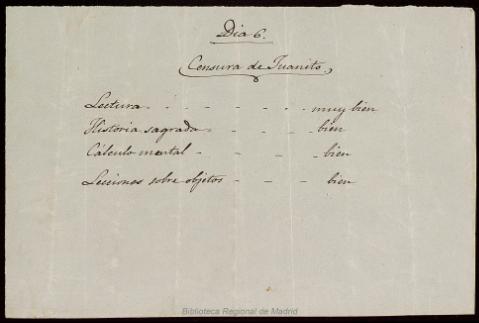 Dia 6.
Censura de Juanito.
Lectura . . - - - - . . muy bien
Historia sagrada - - - - . bien
Cálculo mental - - - . bien
Lecciones sobre objetos - - - - bien
Biblioteca Regional de Madrid